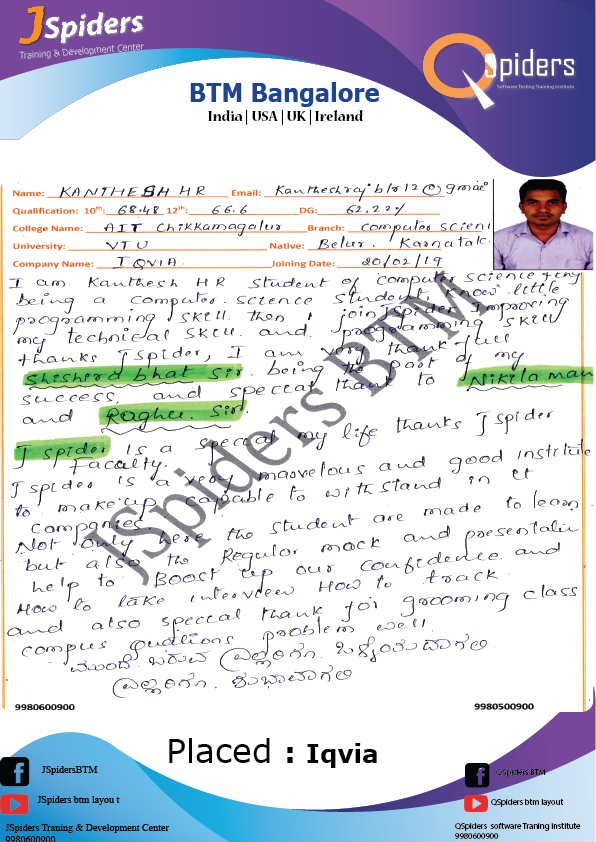 JSpiders
Training & Development Center
QSpiders
Software Testing Training Institute
BTM Bangalore
India | USA | UK | Ireland
Name: KANTHESH HR Email: Kantheshraj blr12@gmai
Qualification: 10th: 68.48 12th: 66.6 DG: 62.22%
College Name: AIT Chikkamagalur Branch: computer scien
University: VTU Native: Belur. Karnatak
Company Name: IQVIA Joining Date: 20/02/19
I am Kanthesh HR student of computer science
being a computer science student, know little
programming skill then I join Jspider Improving
my technical skill and programming skill
thanks Jspider, I am very thankfull
Shishira bhat Sir. being the part of my
success, and special thank to Nikila mam
and Raghu. Sir.
J spider is a special my life thanks J spider
Faculty.
Jspider is a very marvelous and good institute
to makeup capable to withstand in it
companies.
Not only here the student are made to learn
but also the Regular mock and presentatiin
help to Boost up our confidence and
How to take interview How to track
and also special thank for grooming class
compus qustions problem well
ಮುಂದೆ ಬರುವ ಎಲ್ಲರಿಗೂ ಒಳ್ಳೆಯದಾಗಲಿ
ಎಲ್ಲರಿಗೂ ಶುಭವಾಗಲಿ
JSpiders BTM
9980600900 9980500900
Placed : Iqvia
JSpidersBTM
QSpiders BTM
JSpiders btm layou t
QSpiders btm layout
JSpiders Traning & Development Center
9980600900
QSpiders software Traning institute
9980600900